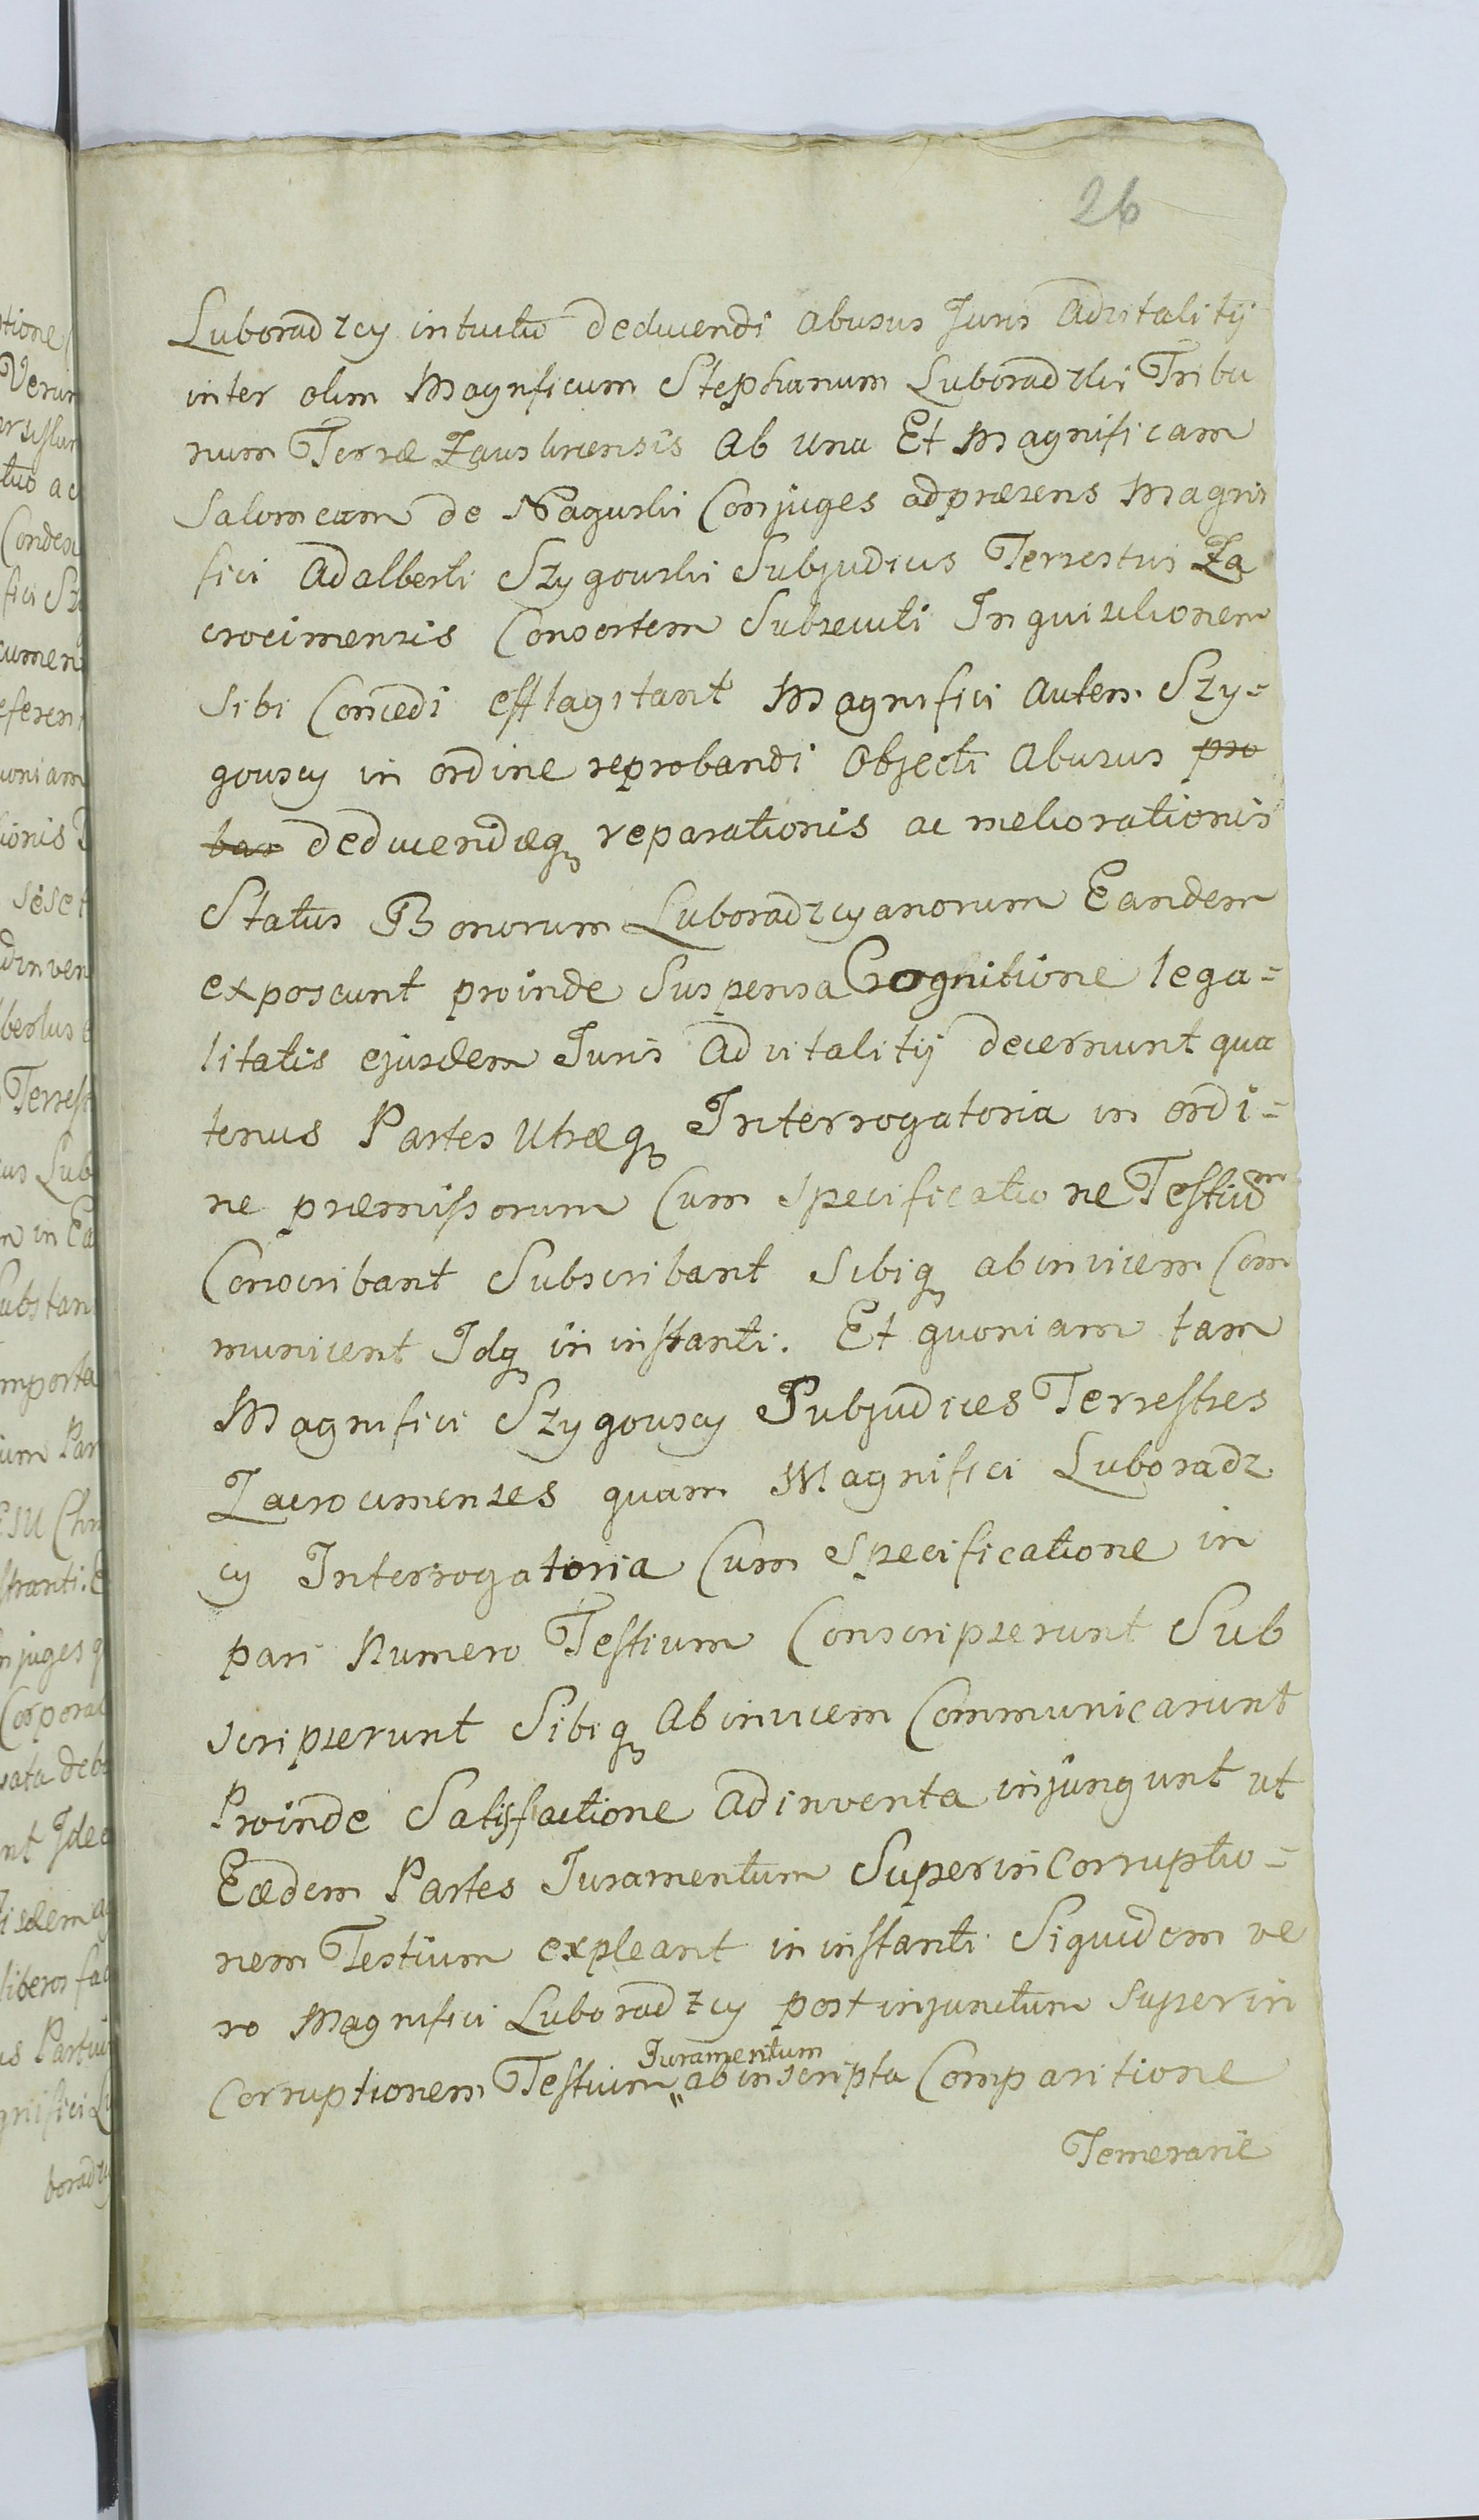 26
Luboradzcy intuitu deducendi abusus Juris Advitalitij
inter olim Magnificum Stephanum Luboradzki Tribu
num Terræ Zauskrensis ab una Et Magnificam
Salomeam de Nagurski Conjuges adpræsens Magni
fici Adalberti Szygowski Subjudicis Terrestris Za
crocimensis Consortem Subsecuti Inquisitionem
Sibi Concedi efflagitant Magnifici autem Szy=
gowscy in ordine reprobandi Objecti Abusus pro
bas deducendæq reparationis ac meliorationis
Status Bonorum Luboradzcyanorum Eandem
exposcunt proinde Suspensa Cognitione lega=
litatis ejusdem Juris Advitalitij decernunt qua
tenus Partes Utræq Interrogatoria in ordi=
ne præmissorum Cum specificatione Testium
Conscribant Subscribant Sibiq abinvicem Com
municent Idq in instanti. Et quoniam tam
Magnifici Szygowscy Subjudices Terrestres
Zacrocimenses quam Magnifici Luboradz
cy Interrogatoria Cum Specificatione in
pari Numero Testium Conscripserunt Sub
scripserunt Sibiq Abinvicem Communicarunt
Proinde Satisfactione Adinventa injungunt ut
Eædem Partes Juramentum Superincorruptio=
nem Testium expleant in instanti Siquidem ve
ro Magnifici Luboradzcy post injunctum superin
Juramentum
Corruptionem Testium " ab inscripta Comparitione
Temerarie